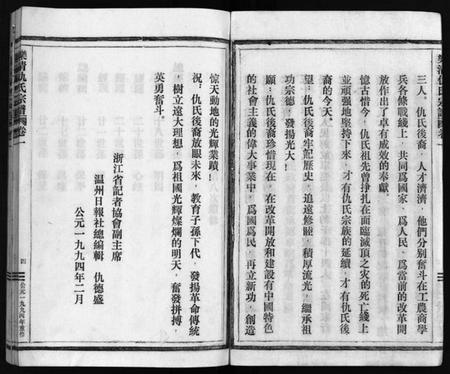 樂清仇氏宗譜卷一
三人。仇氏後裔，人才濟濟，他們分別奮斗在工農商學
兵各條戰綫上，共同爲國家、爲人民、爲當前的改革開
放作出了卓有成效的奉獻。
憶古惜今，仇氏祖先曾掙扎在面臨滅頂之灾的死亡綫上
並頑强地堅持下來，才有仇氏宗族的延續，才有仇氏後
裔的今天。
望：仇氏後裔牢記歷史，追遠修睦，積厚流光，繼承祖
功宗德，發揚光大！
願：仇氏後裔珍惜現在，在改革開放和建設有中國特色
的社會主義的偉大事業中，爲國爲民，再立新功，創造
惊天動地的光輝業績！
祝：仇氏後裔放眼未來，教育子孫下代，發揚革命傳統
，樹立遠大理想，爲祖國光輝燦爛的明天，奮發拼搏，
英勇奮斗。
浙江省記者協會副主席
温州日報社總編輯　仇德盛
公元一九九四年二月
樂清仇氏宗譜卷一
四
公元一九九四年重修